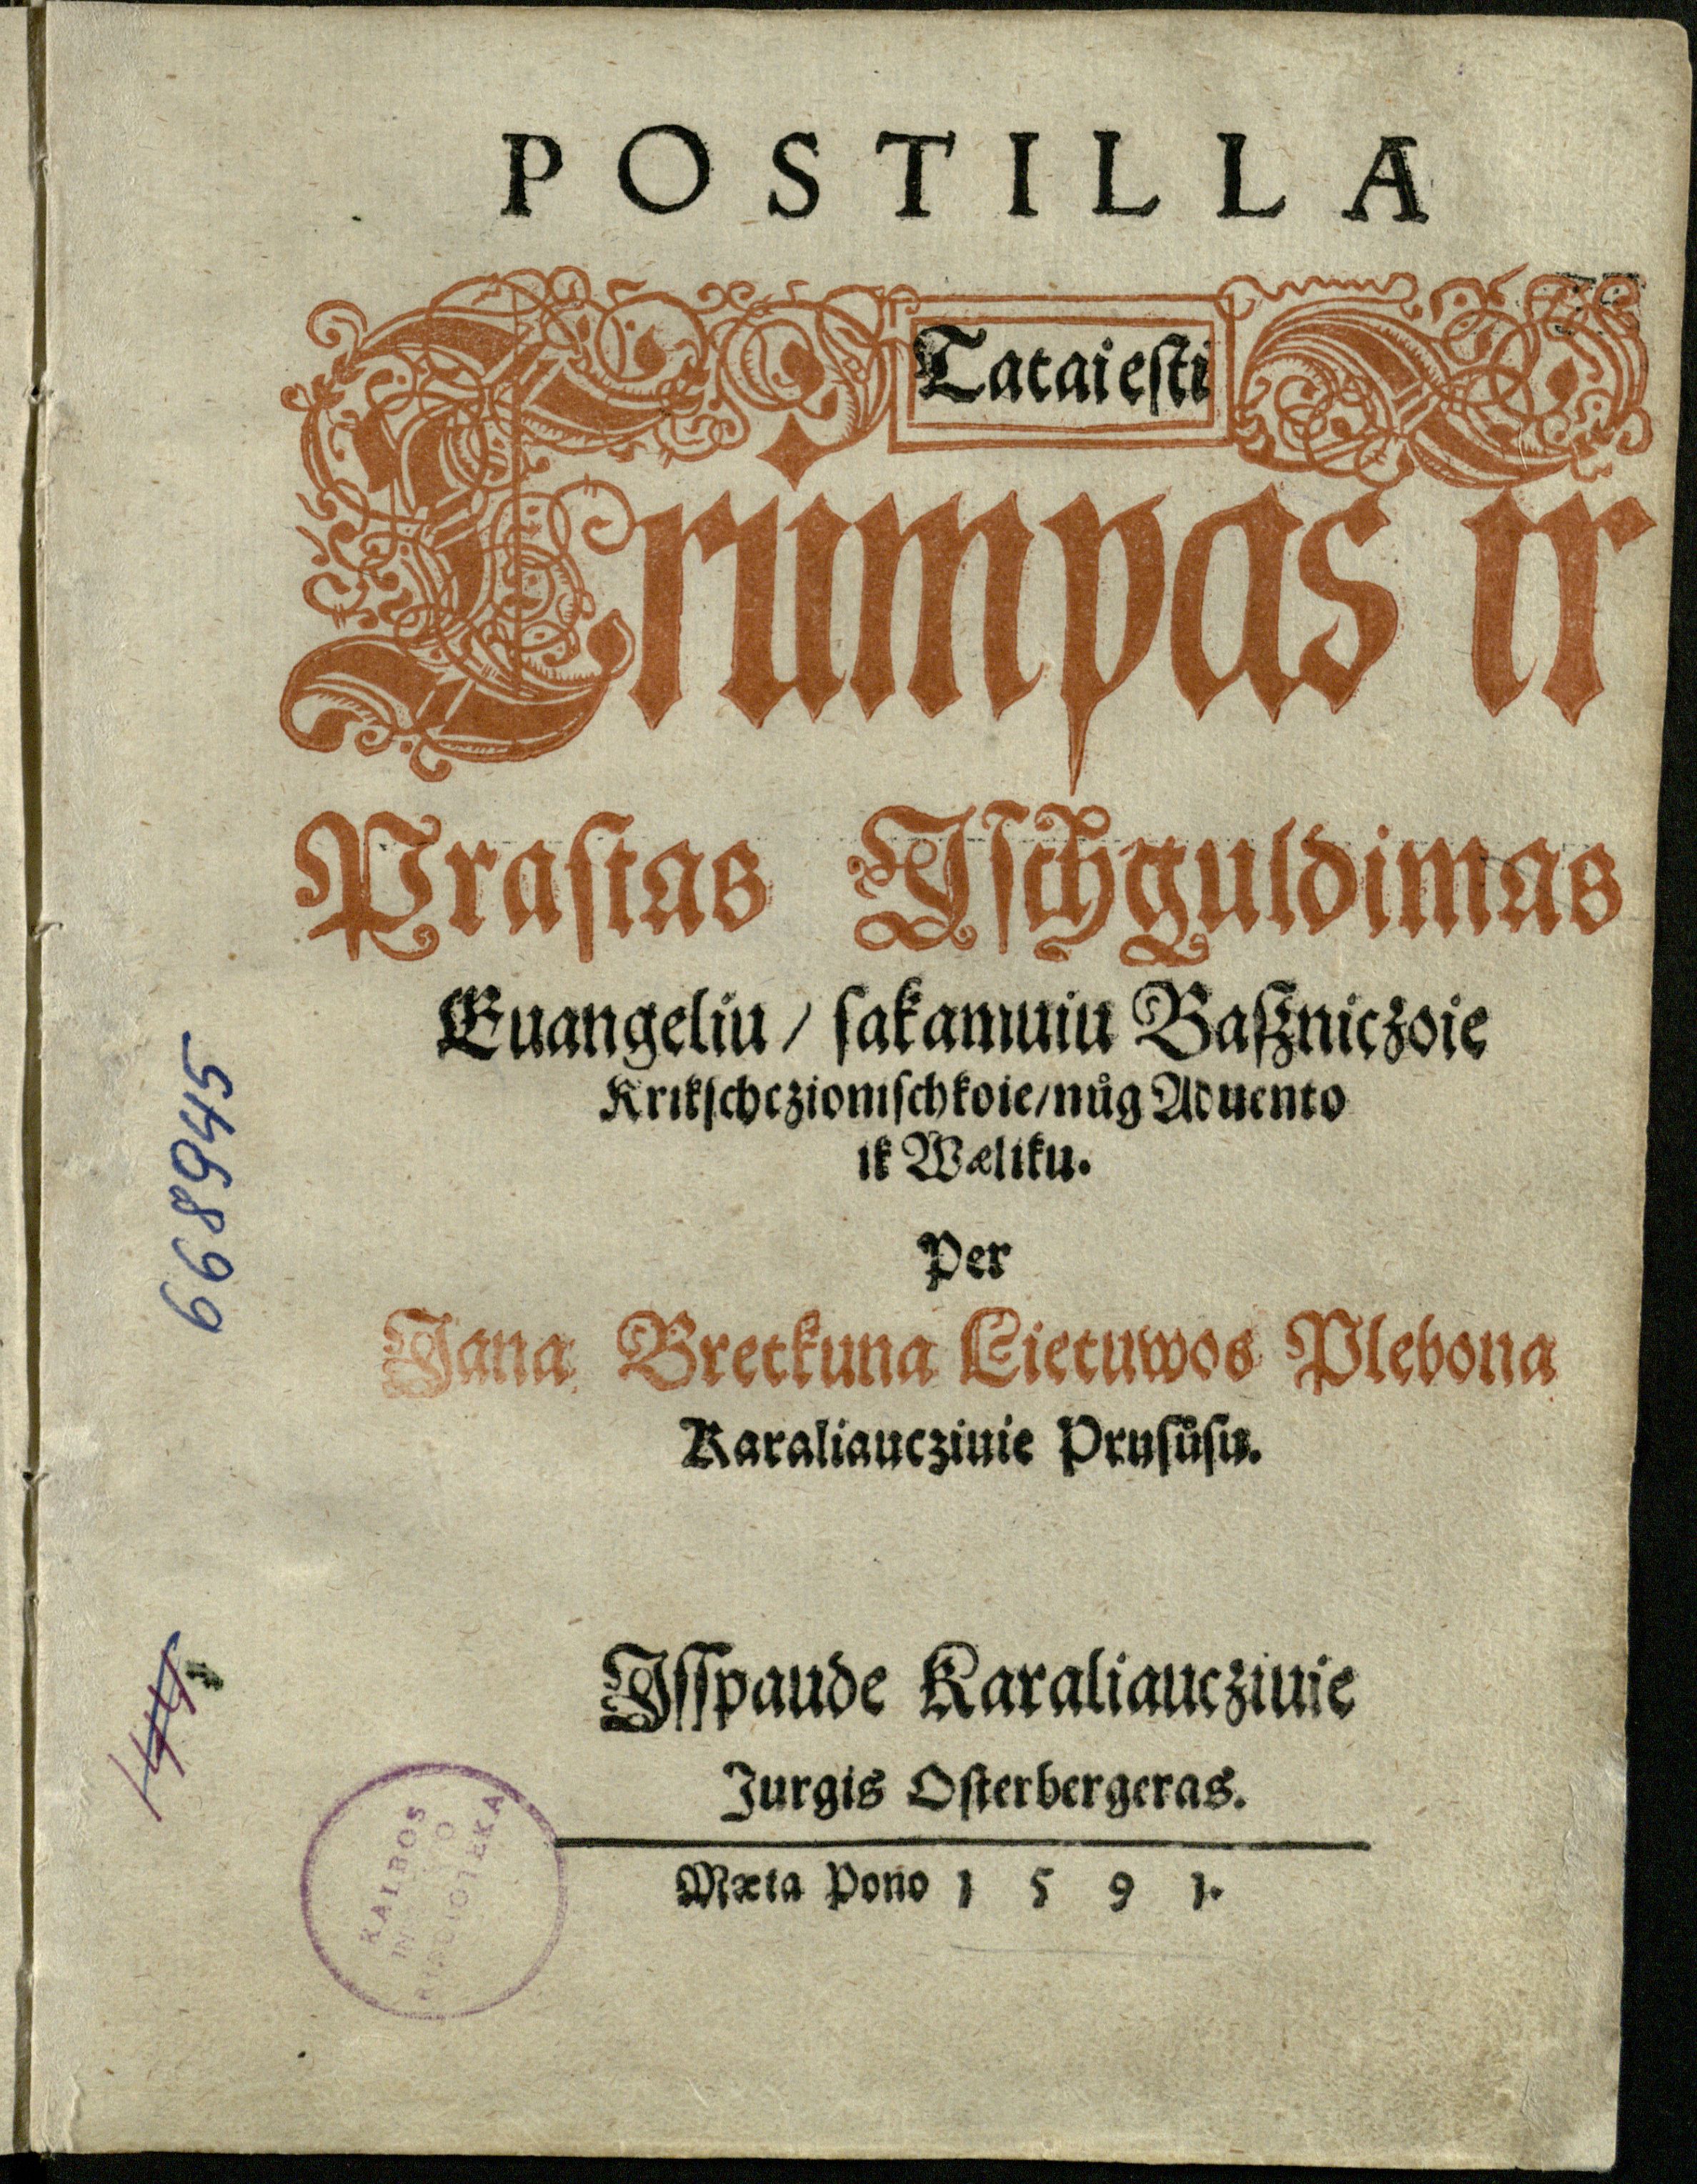 POSTILLA
Tatai esti
Trumpas ir
Prastas Ischguldimas
Euangeliu / sakamuiu Baßniczoie
Krikschczionischkoie / nůg Aduento
ik Wæliku.
Per
Iana Bretkuna Lietuwos Plebona
Karaliaucziuie Prusůsu.
Isspaude Karaliaucziuie
Jurgis Osterbergeras.
Mæta Pono 1 5 9 1.
668945
KALBOS
BIBLIOTEKA